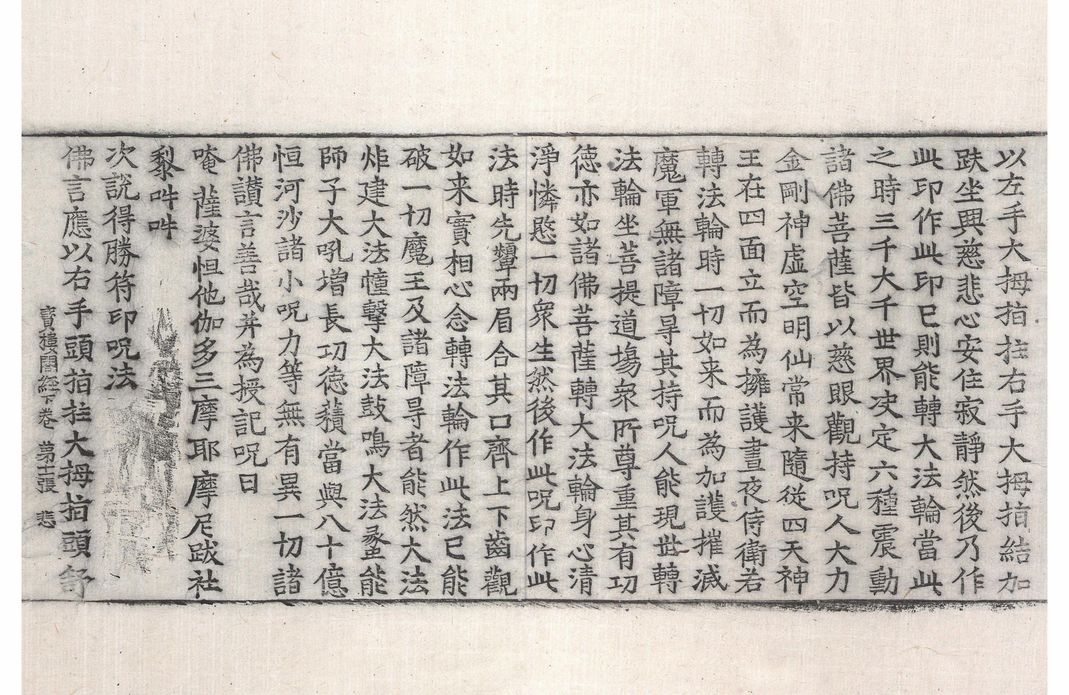 以左手大拇指拄右手大拇指結加
趺坐興慈悲心安住寂靜然後乃作
此印作此印已則能轉大法輪當此
之時三千大千世界決定六種震動
諸佛菩薩皆以慈眼觀持呪人大力
金剛神虛空明仙常來隨從四天神
王在四面立而為擁護晝夜侍衛若
轉法輪時一切如来而為加護摧滅
魔軍無諸障㝵其持呪人能現世轉
法輪坐菩提道場衆所尊重其有功
德亦如諸佛菩薩轉大法輪身心清
淨憐愍一切衆生然後作此呪印作此
法時先顰兩眉合其口齊上下齒觀
如来實相心念轉法輪作此法已能
破一切魔王及諸障㝵者能然大法
炬建大法幢擊大法鼓鳴大法䗍能
師子大吼增長功德蘊當與八十億
恒河沙諸小呪力等無有異一切諸
佛讃言善哉并為授記呪曰
唵薩婆怛他伽多三摩耶摩尼跋社
黎吽吽
次說得勝符印呪法
佛言應以右手頭指拄大拇指頭舒
寶樓閣經下卷 第十張 悲